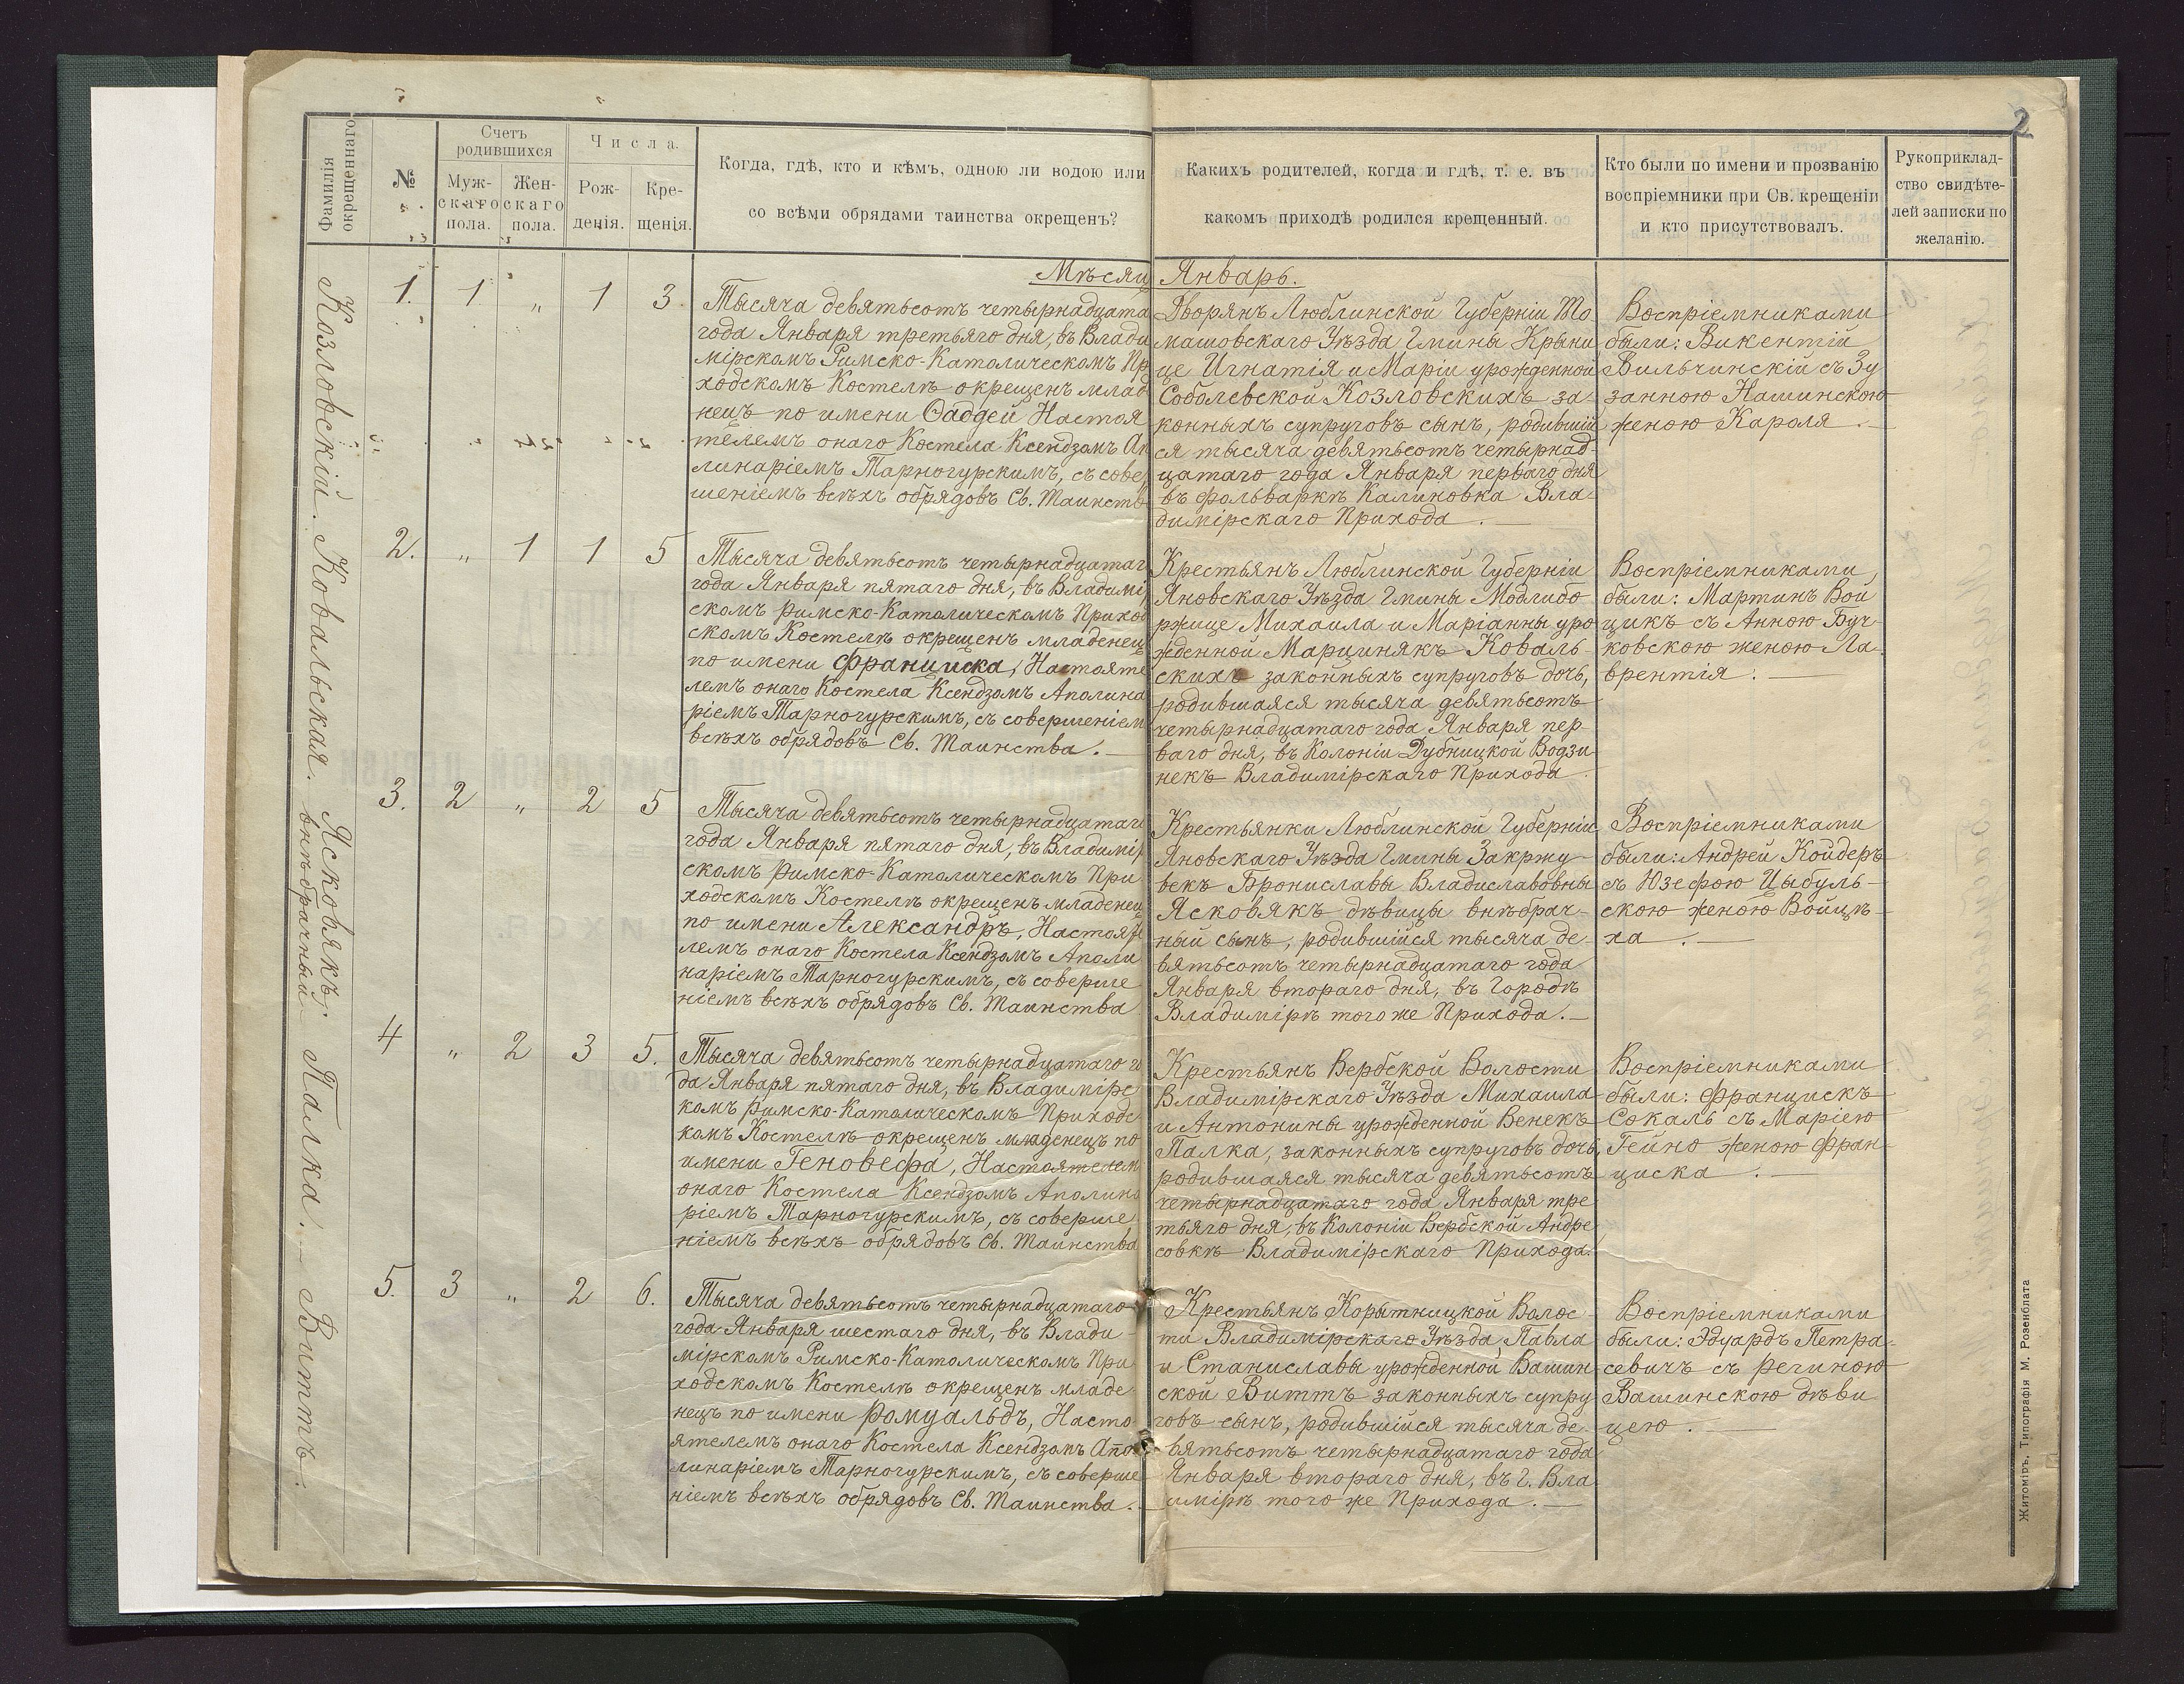 2
Фамилія окрещеннаго
№
Счетъ родившихся
Мужскаго пола.
Женскаго пола.
Числа.
Рожденія.
Крещенія.
Когда, гдѣ, кто и кѣмъ, одною ли водою или
со всѣми обрядами таинства окрещенъ?
Какихъ родителей, когда и гдѣ, т. е. въ
какомъ приходѣ родился крещенный.
Кто были по имени и прозванію
воспріемники при Св. крещеніи
и кто присутствовалъ.
Рукоприклад-
ство свидѣте-
лей записки по
желанію.
Мѣсяц Январь.
Козловскій.
1. 1 „ 1 3
Тысяча девятьсотъ четырнадцата
года Января третьяго дня, въ Влади
мірскомъ Римско-Католическомъ Пр
ходскомъ Костелѣ окрещенъ млад
нецъ по имени Ѳаддей Настоя
телемъ онаго Костела Ксендзомъ Ап
линаріемъ Тарногурскимъ, съ совер
шеніемъ всѣхъ обрядовъ Св. Таинств
Дворянъ Люблинской Губерніи То
машовскаго Уѣзда Гмины Крыни
це Игнатія и Маріи урожденной
Соболевской Козловскихъ за-
конныхъ супруговъ сынъ, родившій
ся тысяча девятьсотъ четырнад-
цатаго года Января перваго дня
въ фольваркѣ Калиновка Вла-
димірскаго Прихода.
Воспріемниками
были: Викентій
Вильчинскій съ Зу
занною Нашинскою
женою Кароля.
Ковальская.
2. „ 1 1 5
Тысяча девятьсотъ четырнадцатаг
года Января пятаго дня, въ Владимі
скомъ Римско-Католическомъ Приход
скомъ Костелѣ окрещенъ младенец
по имени Франциска, Настояте
лемъ онаго Костела Ксендзомъ Аполина
ріемъ Тарногурскимъ, съ совершеніем
всѣхъ обрядовъ Св. Таинства.
Крестьянъ Люблинской Губерніи
Яновскаго Уѣзда Гмины Модлибо
ржице Михаила и Маріанны уро
жденной Марцинякъ Коваль-
скихъ законныхъ супруговъ дочь,
родившаяся тысяча девятьсотъ
четырнадцатаго года Января пер-
ваго дня, въ Колоніи Дубницкой Водзи
некъ Владимірскаго Прихода.
Воспріемниками
были: Мартинъ Вой
цикъ съ Анною Буч-
ковскою женою Ла
врентія.
Ясковякъ,
внѣбрачный
3. 2 „ 2 5
Тысяча девятьсотъ четырнадцатаг
года Января пятаго дня, въ Владимір
скомъ Римско-Католическомъ При
ходскомъ Костелѣ окрещенъ младенец
по имени Александръ, Настояте
лемъ онаго Костела Ксендзомъ Аполи
наріемъ Тарногурскимъ, съ соверше
ніемъ всѣхъ обрядовъ Св. Таинства
Крестьянки Люблинской Губерніи
Яновскаго Уѣзда Гмины Закржу-
векъ Брониславы Владиславовны
Ясковякъ дѣвицы внѣбрач-
ный сынъ, родившійся тысяча де-
вятьсотъ четырнадцатаго года
Января втораго дня, въ Городѣ
Владимірѣ того же Прихода.
Воспріемниками
были: Андрей Койдеръ
съ Юзефою Цыбуль-
скою женою Войцѣ-
ха.
Палка.
4 „ 2 3 5.
Тысяча девятьсотъ четырнадцатаго го
да Января пятаго дня, въ Владимірс
комъ Римско-Католическомъ Приходс
комъ Костелѣ окрещенъ младенецъ по
имени Геновефа, Настоятелем
онаго Костела Ксендзомъ Аполина
ріемъ Тарногурскимъ, съ соверше
ніемъ всѣхъ обрядовъ Св. Таинства
Крестьянъ Вербской Волости
Владимірскаго Уѣзда Михаила
и Антонины урожденной Венекъ
Палка, законныхъ супруговъ дочь,
родившаяся тысяча девятьсотъ
четырнадцатаго года Января тре
тьяго дня, въ Колоніи Вербской Андре
совкѣ Владимірскаго Прихода.
Воспріемниками
были: Францискъ
Сокалъ съ Маріею
Гейно женою Фран-
циска.
Виттъ.
5. 3 „ 2 6.
Тысяча девятьсотъ четырнадцатаго
года Января шестаго дня, въ Влади-
мірскомъ Римско-Католическомъ При
ходскомъ Костелѣ окрещенъ младе
нецъ по имени Ромуальдъ, Насто-
ятелемъ онаго Костела Ксендзомъ Апо
линаріемъ Тарногурскимъ, съ соверше
ніемъ всѣхъ обрядовъ Св. Таинства.
Крестьянъ Корытницкой Волос-
ти Владимірскаго Уѣзда Павла
и Станиславы урожденной Вашин
ской Виттъ законныхъ супру
говъ сынъ, родившійся тысяча де-
вятьсотъ четырнадцатаго года
Января втораго дня, въ г. Вла
имірѣ того же Прихода.
Воспріемниками
были: Эдуардъ Петра-
севичъ съ Региною
Вашинскою дѣви
цею.
Житоміръ, Типографія М. Розенблата